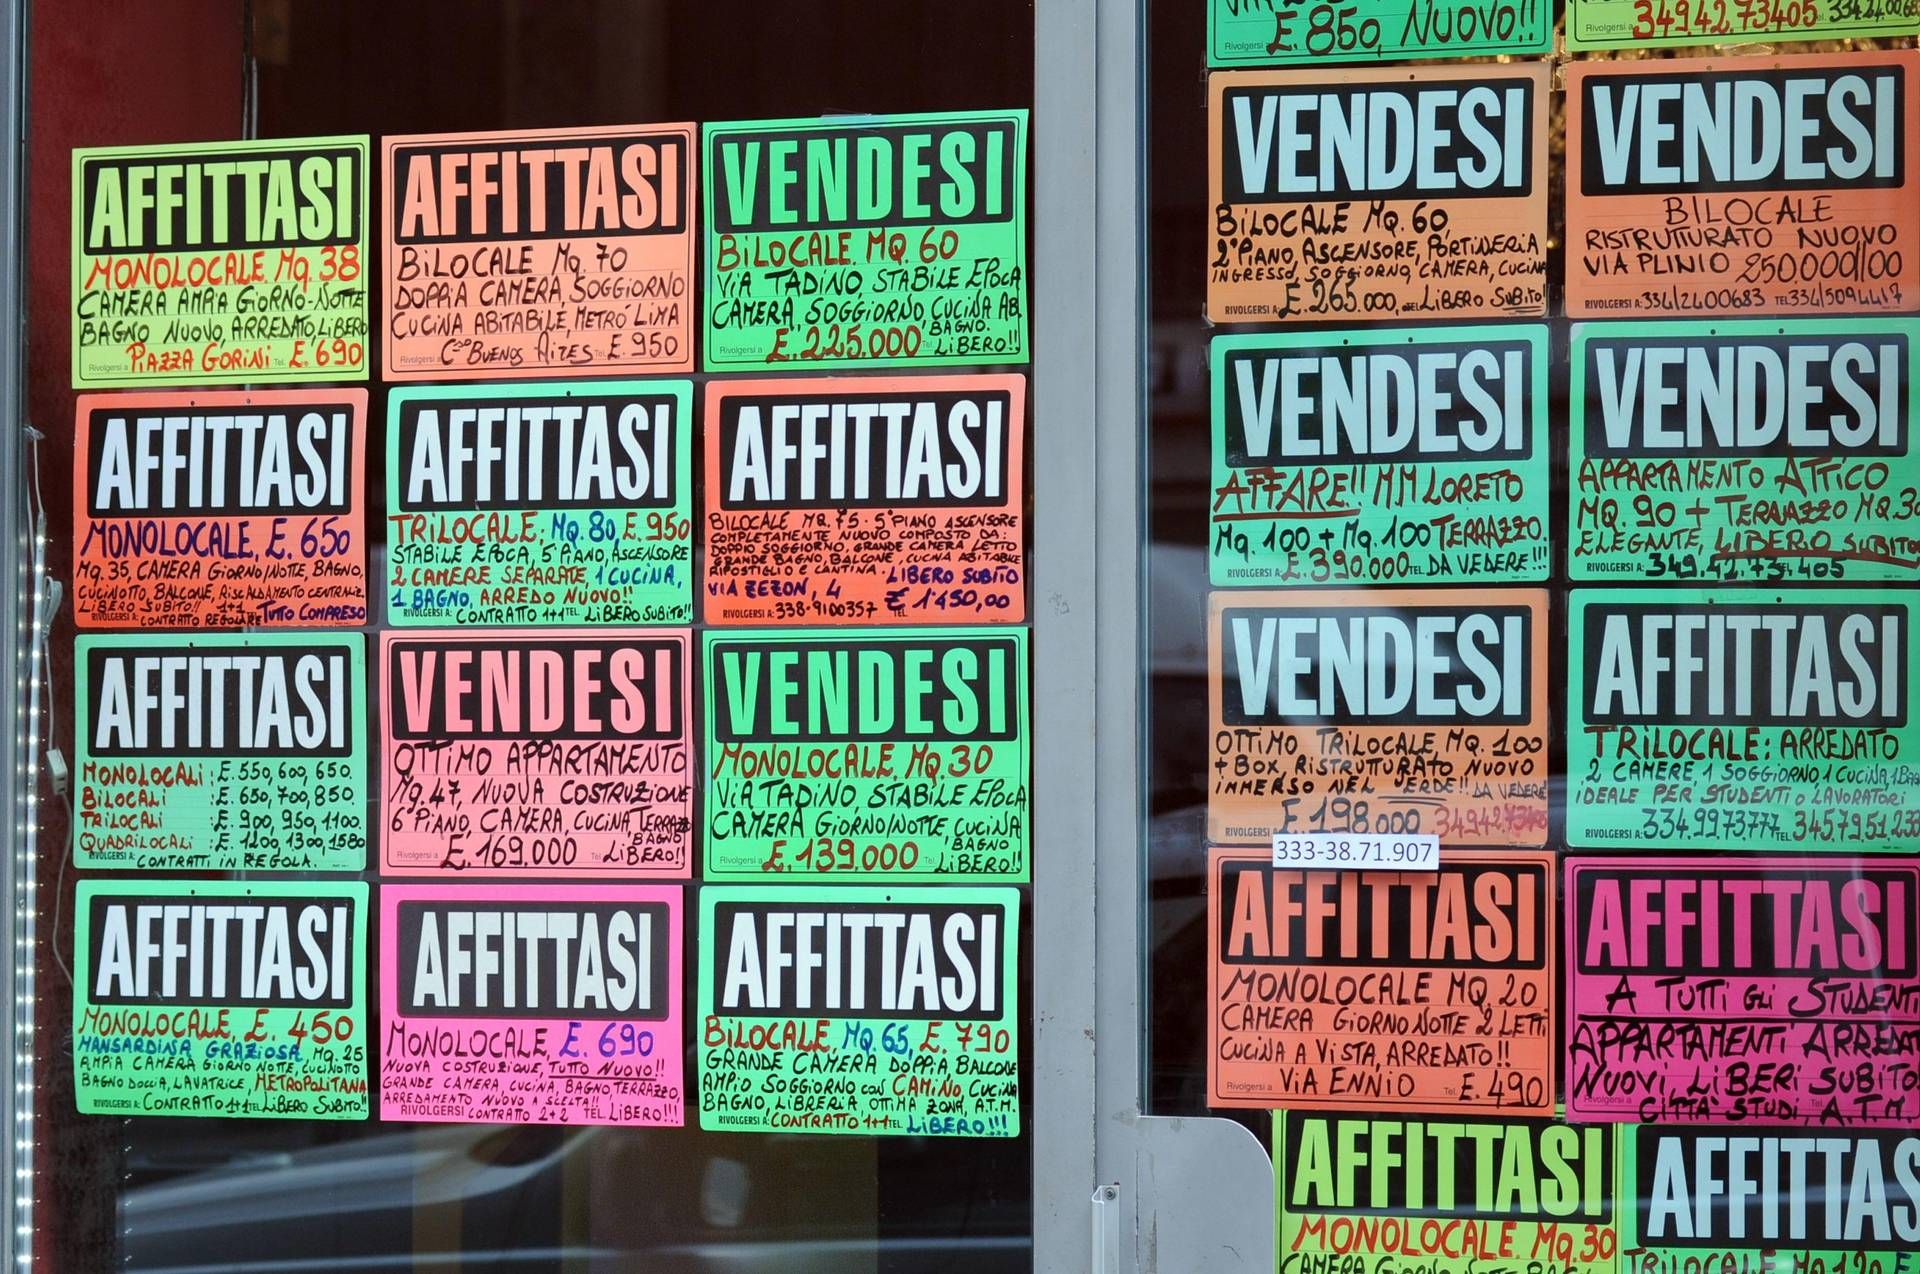 AFFITTASI
MONOLOCALE Mq. 38
CAMERA AMPIA GIORNO-NOTTE
BAGNO NUOVO, ARREDATO, LIBERO
Rivolgersi a PIAZZA GORINI Tel. E. 690
AFFITTASI
BILOCALE Mq. 70
DOPPIA CAMERA, SOGGIORNO
CUCINA ABITABILE, METRÓ LIMA
Rivolgersi a C.so BUENOS AIRES Tel. E. 950
VENDESI
BILOCALE MQ. 60
VIA TADINO, STABILE EPOCA
CAMERA, SOGGIORNO, CUCINA AB.
BAGNO.
Rivolgersi a E. 225.000 Tel. LIBERO!!
AFFITTASI
MONOLOCALE, E. 650
Mq. 35, CAMERA GIORNO/NOTTE, BAGNO,
CUCINOTTO, BALCONE, RISCALDAMENTO CENTRALIZ.
LIBERO SUBITO!! 1+1 TUTTO COMPRESO
RIVOLGERSI A: CONTRATTO REGOLARE
AFFITTASI
TRILOCALE, MQ. 80, E. 950
STABILE EPOCA, 5° PIANO, ASCENSORE
2 CAMERE SEPARATE, 1 CUCINA,
1 BAGNO, ARREDO NUOVO!!
RIVOLGERSI A: CONTRATTO 1+1 TEL. LIBERO SUBITO!!
AFFITTASI
BILOCALE MQ. 75 - 5° PIANO ASCENSORE
COMPLETAMENTE NUOVO COMPOSTO DA:
DOPPIO SOGGIORNO, GRANDE CAMERA LETTO
GRANDE BAGNO, BALCONE, CUCINA ABITABILE
RIPOSTIGLIO E CANTINA. LIBERO SUBITO
VIA ZEZON, 4 E 1450,00
RIVOLGERSI A: 338-9100357 TEL.
AFFITTASI
MONOLOCALI: E. 550, 600, 650.
BILOCALI : E. 650, 700, 850.
TRILOCALI : E. 900, 950, 1100.
QUADRILOCALI : E. 1200, 1300, 1580
RIVOLGERSI A: CONTRATTI IN REGOLA.
VENDESI
OTTIMO APPARTAMENTO
Mq. 47, NUOVA COSTRUZIONE
6° PIANO, CAMERA, CUCINA, TERRAZZO
BAGNO
Rivolgersi a E. 169.000 Tel. LIBERO!!
VENDESI
MONOLOCALE, MQ. 30
VIA TADINO, STABILE EPOCA
CAMERA GIORNO/NOTTE, CUCINA
BAGNO
Rivolgersi a E. 139.000 Tel. LIBERO!!
AFFITTASI
MONOLOCALE, E. 450
MANSARDINA GRAZIOSA, MQ. 25
AMPIA CAMERA GIORNO NOTTE, CUCINOTTO
BAGNO DOCCIA, LAVATRICE, METROPOLITANA
RIVOLGERSI A: CONTRATTO 1+1 TEL. LIBERO SUBITO!!
AFFITTASI
MONOLOCALE, E. 690
NUOVA COSTRUZIONE, TUTTO NUOVO!!
GRANDE CAMERA, CUCINA, BAGNO, TERRAZZO,
ARREDAMENTO NUOVO A SCELTA!!
RIVOLGERSI CONTRATTO 2+2 TEL. LIBERO!!!
AFFITTASI
BILOCALE, MQ. 65, E. 790
GRANDE CAMERA DOPPIA, BALCONE
AMPIO SOGGIORNO con CAMINO, CUCINA
BAGNO, LIBRERIA OTTIMA ZONA, A.T.M.
RIVOLGERSI A: CONTRATTO 1+1 TEL. LIBERO!!!
Rivolgersi a E. 850, NUOVO!!
Rivolgersi a 349.42.73405 Tel.
VENDESI
BILOCALE MQ. 60,
2° PIANO, ASCENSORE, PORTINERIA
INGRESSO, SOGGIORNO, CAMERA, CUCINA
RIVOLGERSI A: E. 265.000, TEL. LIBERO SUBITO!
VENDESI
BILOCALE
RISTRUTTURATO NUOVO
VIA PLINIO 250.000//00
RIVOLGERSI A: 334/2400683 TEL. 334/5094417
VENDESI
AFFARE!! MM LORETO
Mq. 100 + Mq. 100 TERRAZZO.
RIVOLGERSI A: E. 390.000 TEL. DA VEDERE!!!
VENDESI
APPARTAMENTO ATTICO
MQ. 90 + TERRAZZO MQ.
ELEGANTE, LIBERO SUBITO
RIVOLGERSI A: 349.42.73.405
VENDESI
OTTIMO TRILOCALE, MQ. 100
+ BOX, RISTRUTTURATO NUOVO
IMMERSO NEL VERDE!! DA VEDERE
RIVOLGERSI A: E. 198.000 3494273405
333-38.71.907
AFFITTASI
TRILOCALE: ARREDATO
2 CAMERE, 1 SOGGIORNO, 1 CUCINA, 1
IDEALE PER STUDENTI o LAVORATORI
RIVOLGERSI A: 334.9973.777 TEL. 345.79.51.238
AFFITTASI
MONOLOCALE MQ. 20
CAMERA GIORNO NOTTE 2 LETTI
CUCINA A VISTA, ARREDATO!!
Rivolgersi a VIA ENNIO Tel. E. 490
AFFITTASI
A TUTTI GLI STUDENTI
APPARTAMENTI ARREDATI
NUOVI, LIBERI SUBITO
Rivolgersi a CITTÀ STUDI, A.T.M.
AFFITTASI
MONOLOCALE MQ. 30
CAMERA GIORNO NOTTE
AFFITTAS
TRILOCALE MQ 120 E